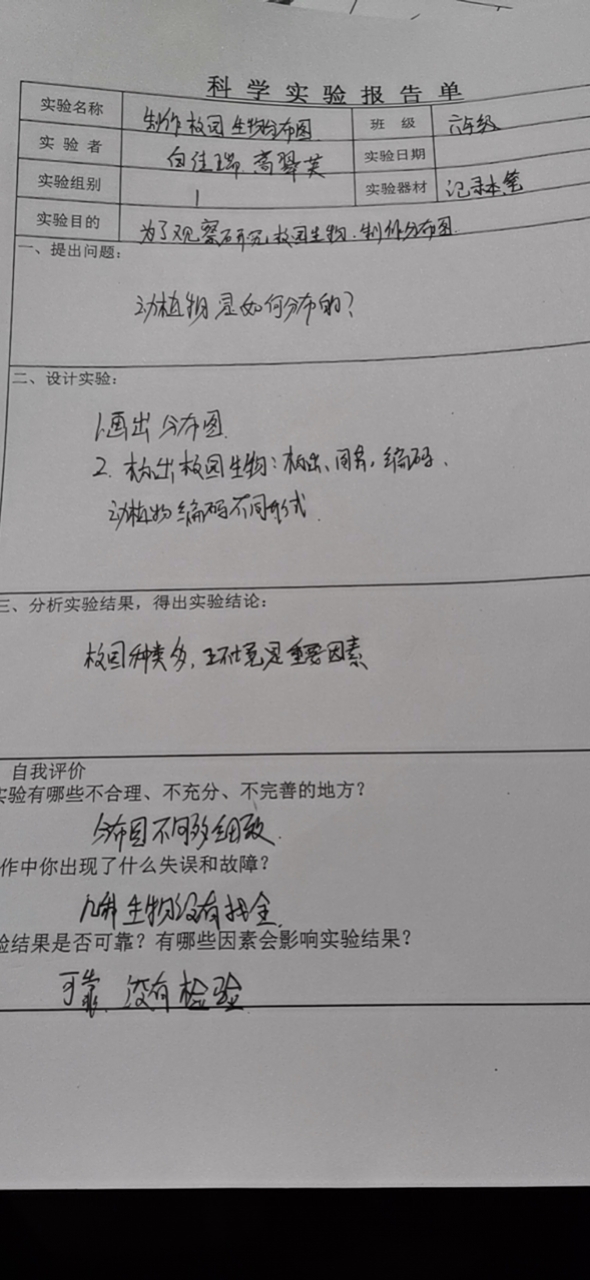 科学实验报告单
实验名称 制作校园生物分布图 班 级 六年级
实 验 者 白佳瑞 高翠芙 实验日期
实验组别 1 实验器材 记录本笔
实验目的 为了观察研究校园生物.制作分布图.
一、提出问题：
动植物是如何分布的？
二、设计实验：
1.画出分布图.
2. 标出校园生物：标出、同名，编码.
动植物编码不同形式.
三、分析实验结果，得出实验结论：
校园种类多，环境是重要因素
自我评价
实验有哪些不合理、不充分、不完善的地方？
分布图不够细致.
作中你出现了什么失误和故障？
生物没有找全.
验结果是否可靠？有哪些因素会影响实验结果？
可靠. 没有检验